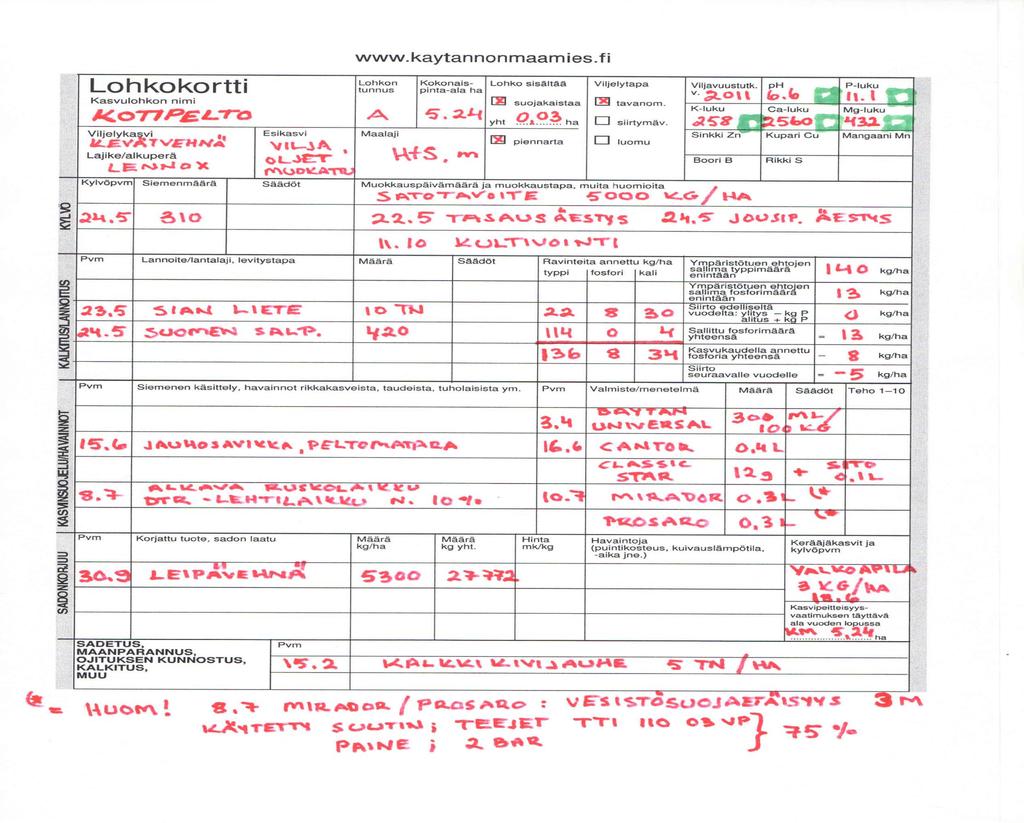 www.kaytannonmaamies.fi
Lohkokortti
Kasvulohkon nimi
KOTIPELTO
Lohkon tunnus
A
Kokonais-pinta-ala ha
5.24
Lohko sisältää
☒ suojakaistaa
yht 0.03 ha
☒ piennarta
Viljelytapa
☒ tavanom.
☐ siirtymäv.
☐ luomu
Viljavuustutk. v. 2011
pH
6.6
P-luku
11.1
K-luku
258
Ca-luku
2560
Mg-luku
432
Viljelykasvi
KEVÄTVEHNÄ
Lajike/alkuperä
LENNOX
Esikasvi
VILJA,
OLJET
MUOKATTU
Maalaji
HtS, m
Sinkki Zn
Kupari Cu
Mangaani Mn
Boori B
Rikki S
KYLVÖ
Kylvöpvm Siemenmäärä Säädöt Muokkauspäivämäärä ja muokkaustapa, muita huomioita
SATOTAVOITE 5000 KG/HA
24.5 310 22.5 TASAUSÄESTYS 24.5 JOUSIP. ÄESTYS
11.10 KULTIVOINTI
KALKITUS/LANNOITUS
Pvm Lannoite/lantalaji, levitystapa Määrä Säädöt Ravinteita annettu kg/ha
typpi fosfori kali
23.5 SIAN LIETE 10 TN 22 8 30
24.5 SUOMEN SALP. 420 114 0 4
136 8 34
Ympäristötuen ehtojen sallima typpimäärä enintään 140 kg/ha
Ympäristötuen ehtojen sallima fosforimäärä enintään 13 kg/ha
Siirto edelliseltä vuodelta: ylitys – kg P alitus + kg P 0 kg/ha
Sallittu fosforimäärä yhteensä = 13 kg/ha
Kasvukaudella annettu fosforia yhteensä – 8 kg/ha
Siirto seuraavalle vuodelle = -5 kg/ha
KASVINSUOJELU/HAVAINNOT
Pvm Siemenen käsittely, havainnot rikkakasveista, taudeista, tuholaisista ym. Pvm Valmiste/menetelmä Määrä Säädöt Teho 1–10
3.4 BAYTAN UNIVERSAL 300 ML/100 KG
15.6 JAUHOSAVIKKA, PELTOMATARA 16.6 CANTOR 0.4L
CLASSIC STAR 12g + SITO 0.1L
8.7 ALKAVA RUSKOLAIKKU
DTR -LEHTILAIKKU N. 10% 10.7 MIRADOR 0.3L (*
PROSARO 0,3L (*
SADONKORJUU
Pvm Korjattu tuote, sadon laatu Määrä kg/ha Määrä kg yht. Hinta mk/kg Havaintoja (puintikosteus, kuivauslämpötila, -aika jne.) Kerääjäkasvit ja kylvöpvm
30.9 LEIPÄVEHNÄ 5300 27772
VALKOAPILA
3 KG/HA
18.6
Kasvipeitteisyys-
vaatimuksen täyttävä
ala vuoden lopussa
KM 5,24 ha
SADETUS,
MAANPARANNUS,
OJITUKSEN KUNNOSTUS,
KALKITUS,
MUU
Pvm
15.2 KALKKIKIVIJAUHE 5 TN/HA
(* = HUOM! 8.7 MIRADOR/PROSARO : VESISTÖSUOJAETÄISYYS 3M
KÄYTETTY SUUTIN; TEEJET TTI 110 03 VP } 75 %
PAINE ; 2 BAR